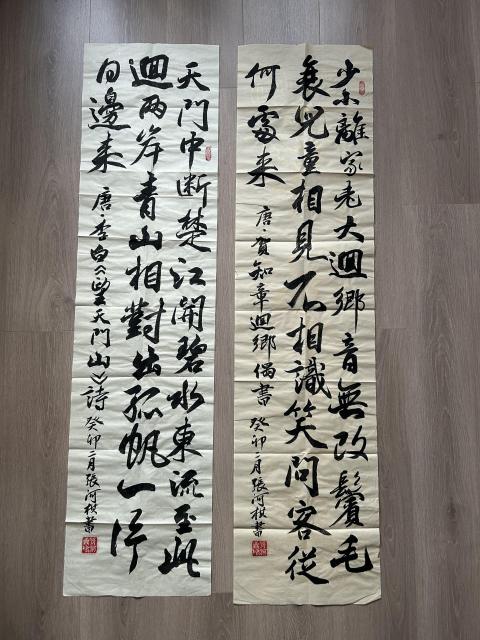 少小離家老大迴鄉音無改鬢毛
衰兒童相見不相識笑問客從
何處来 唐·賀知章迴鄉偶書 癸卯二月張河書
天門中断楚江開碧水東流至此
迴兩岸青山相對出孤帆一片
日邊来 唐·李白《望天門山》詩 癸卯二月張河書